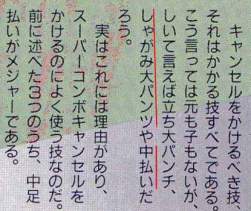 キャンセルをかけるべき技、
それはかかる技すべてである。
こう言っては元も子もないが、
しいて言えば立ち大パンチ、
しゃがみ大パンツや中払いだ
ろう。
実はこれには理由があり、
スーパーコンボキャンセルを
かけるのによく使う技なのだ。
前に述べた3つのうち、中足
払いがメジャーである。